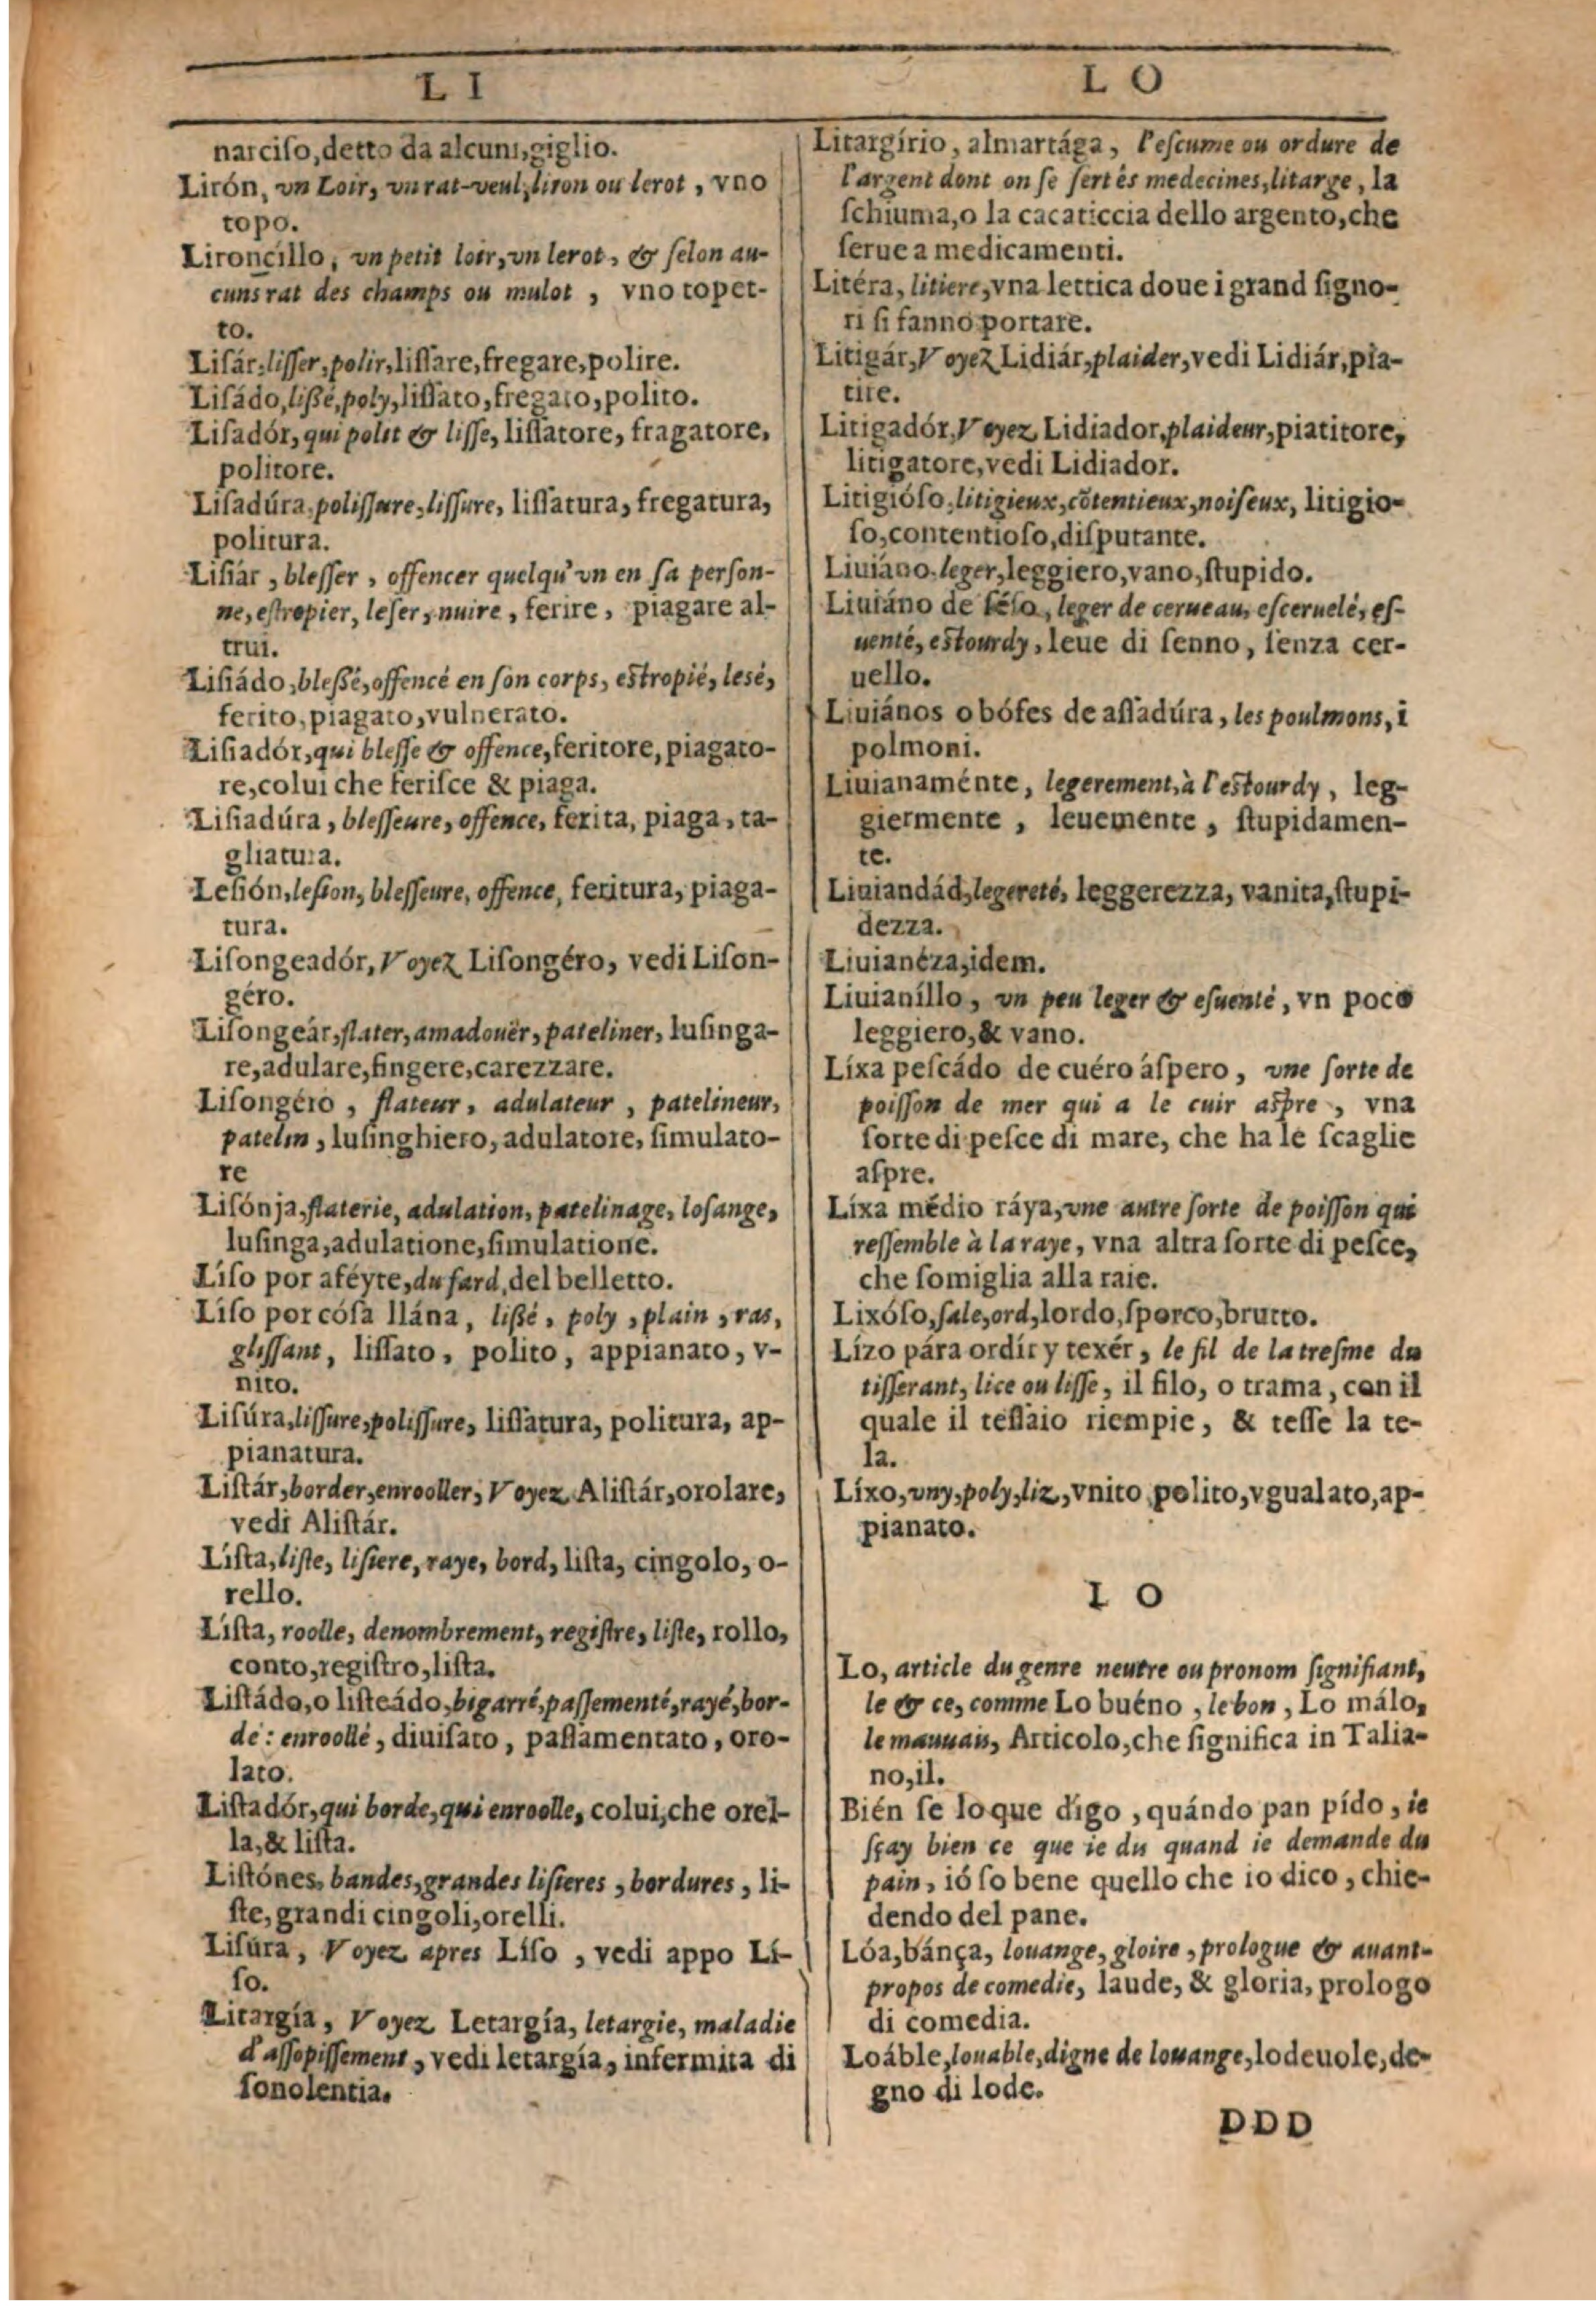 L I
narciſo,detto da alcuni,giglio.
Lirón, vn Loir, vn rat-veul, liron ou lerot, vno
topo.
Lironcillo, vn petit loir, vn lerot, & ſelon au-
cuns rat des champs ou mulot, vno topet-
to.
Liſár,liſſer,polir,liſſare,fregare,polire.
Liſádo,lißé,poly,liſſato,fregato,polito.
Liſadór, qui polit & liſſe, liſſatore, fragatore,
politore.
Liſadúra,poliſſure,liſſure, liſſatura, fregatura,
politura.
Liſiár, bleſſer, offencer quelqu'vn en ſa perſon-
ne,eſtropier, leſer, nuire, ferire, piagare al-
trui.
Liſiádo,bleßé,offencé en ſon corps, eſtropié, lesé,
ferito,piagato,vulnerato.
Liſiadór,qui bleſſe & offence,feritore, piagato-
re,colui che feriſce & piaga.
Liſiadúra, bleſſeure, offence, ferita, piaga, ta-
gliatura.
Leſión,leſion, bleſſeure, offence, feritura, piaga-
tura.
Liſongeadór, Voyez Liſongéro, vedi Liſon-
géro.
Liſongeár,flater,amadouër, pateliner, luſinga-
re,adulare,fingere,carezzare.
Liſongéro, flateur, adulateur, patelineur,
patelin, luſinghiero, adulatore, ſimulato-
re
Liſónja,flaterie, adulation, patelinage, loſange,
luſinga,adulatione,ſimulatione.
Líſo por aféyte,du fard,del belletto.
Líſo por cóſa llána, lißé, poly, plain, ras,
gliſſant, liſſato, polito, appianato, v-
nito.
Liſúra,liſſure,poliſſure, liſſatura, politura, ap-
pianatura.
Liſtár,border,enrooller, Voyez Aliſtár,orolare,
vedi Aliſtár.
Líſta,liſte, liſiere, raye, bord, liſta, cingolo, o-
rello.
Líſta, roolle, denombrement, regiſtre, liſte, rollo,
conto,regiſtro,liſta.
Liſtádo,o liſteádo,bigarré,paſſementé,rayé,bor-
dé: enroollé, diuiſato, paſſamentato, oro-
lato.
Liſtadór,qui borde,qui enroolle, colui,che orel-
la,& liſta.
Liſtónes, bandes,grandes liſieres, bordures, li-
ſte,grandi cingoli,orelli.
Liſúra, Voyez apres Líſo, vedi appo Lí-
ſo.
Litargía, Voyez Letargía, letargie, maladie
d'aſſopiſſement, vedi letargía, infermita di
ſonolentia.
L O
Litargírio, almartága, l'eſcume ou ordure de
l'argent dont on ſe ſert és medecines,litarge, la
ſchiuma,o la cacaticcia dello argento,che
ſerue a medicamenti.
Litéra, litiere,vna lettica doue i grand ſigno-
ri ſi fanno portare.
Litigár,Voyez Lidiár,plaider,vedi Lidiár,pia-
tire.
Litigadór,Voyez Lidiador,plaideur,piatitore,
litigatore,vedi Lidiador.
Litigióſo,litigieux,cõtentieux,noiſeux, litigio-
ſo,contentioſo,diſputante.
Liuiáno,leger,leggiero,vano,ſtupido.
Liuiáno de ſéſo, leger de cerueau, eſceruelé, eſ-
uenté, eſtourdy, leue di ſenno, ſenza cer-
uello.
Liuiános o bófes de aſſadúra, les poulmons, i
polmoni.
Liuianaménte, legerement,à l'eſtourdy, leg-
giermente, leuemente, ſtupidamen-
te.
Liuiandád,legereté, leggerezza, vanita,ſtupi-
dezza.
Liuianéza,idem.
Liuianíllo, vn peu leger & eſuenté, vn poco
leggiero,& vano.
Líxa peſcádo de cuéro áſpero, vne ſorte de
poiſſon de mer qui a le cuir aſpre, vna
ſorte di peſce di mare, che ha le ſcaglie
aſpre.
Líxa médio ráya,vne autre ſorte de poiſſon qui
reſſemble à la raye, vna altra ſorte di peſce,
che ſomiglia alla raie.
Lixóſo,ſale,ord,lordo,ſporco,brutto.
Lízo pára ordír y texér, le fil de la treſme du
tiſſerant, lice ou liſſe, il filo, o trama, con il
quale il teſſaio riempie, & teſſe la te-
la.
Líxo,vny,poly,liz,vnito polito,vgualato,ap-
pianato.
L O
Lo, article du genre neutre ou pronom ſignifiant,
le & ce, comme Lo buéno, le bon, Lo málo,
le mauuais, Articolo,che ſignifica in Talia-
no,il.
Bién ſe lo que dígo, quándo pan pído, ie
ſçay bien ce que ie dis quand ie demande du
pain, ió ſo bene quello che io dico, chie-
dendo del pane.
Lóa,bánça, louange, gloire, prologue & auant-
propos de comedie, laude, & gloria, prologo
di comedia.
Loáble,louable,digne de louange,lodeuole,de-
gno di lode.
DDD